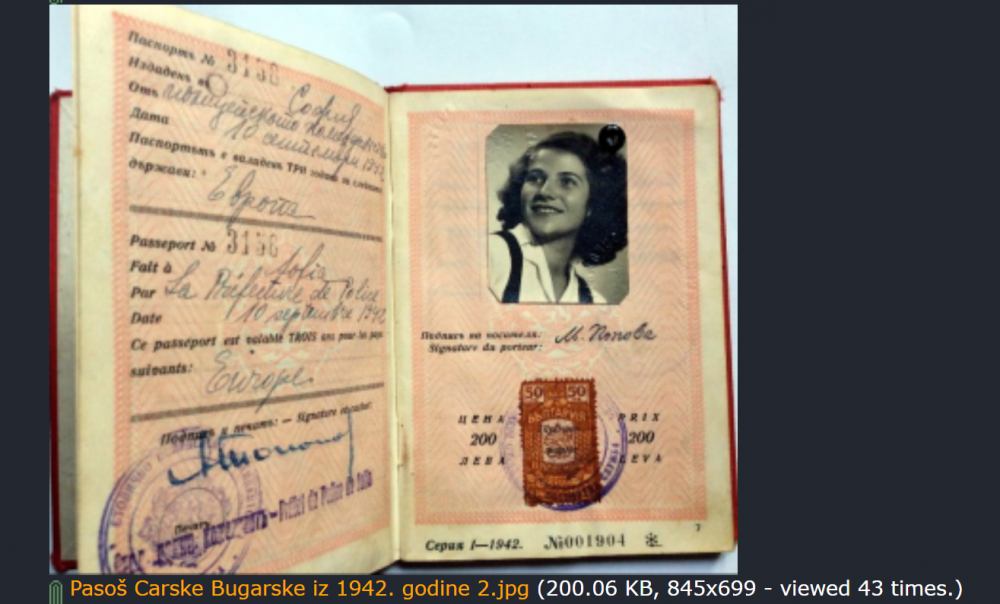 Паспортъ № 3156
Издаденъ въ София
Отъ полицейското
Дата 10 септемврий 1942
Паспортътъ е валиденъ ТРИ години за следните
държави:
Европа
Passeport № 3156
Fait à Sofia
Par La Préfecture de Police
Date 10 septembre 1942
Ce passeport est valable TROIS ans pour les pays
suivants:
Europe
Подпись и печать: — Signature et cachet:
Печать
Prefet de Police de Sofia
Подпись на носителя:
Signature du porteur:
М. Попова
50 50
БЪЛГАРИЯ
ЦЕНА
200
ЛЕВА
PRIX
200
LEVA
7
Серия I—1942. №001904
Pasoš Carske Bugarske iz 1942. godine 2.jpg (200.06 KB, 845x699 - viewed 43 times.)